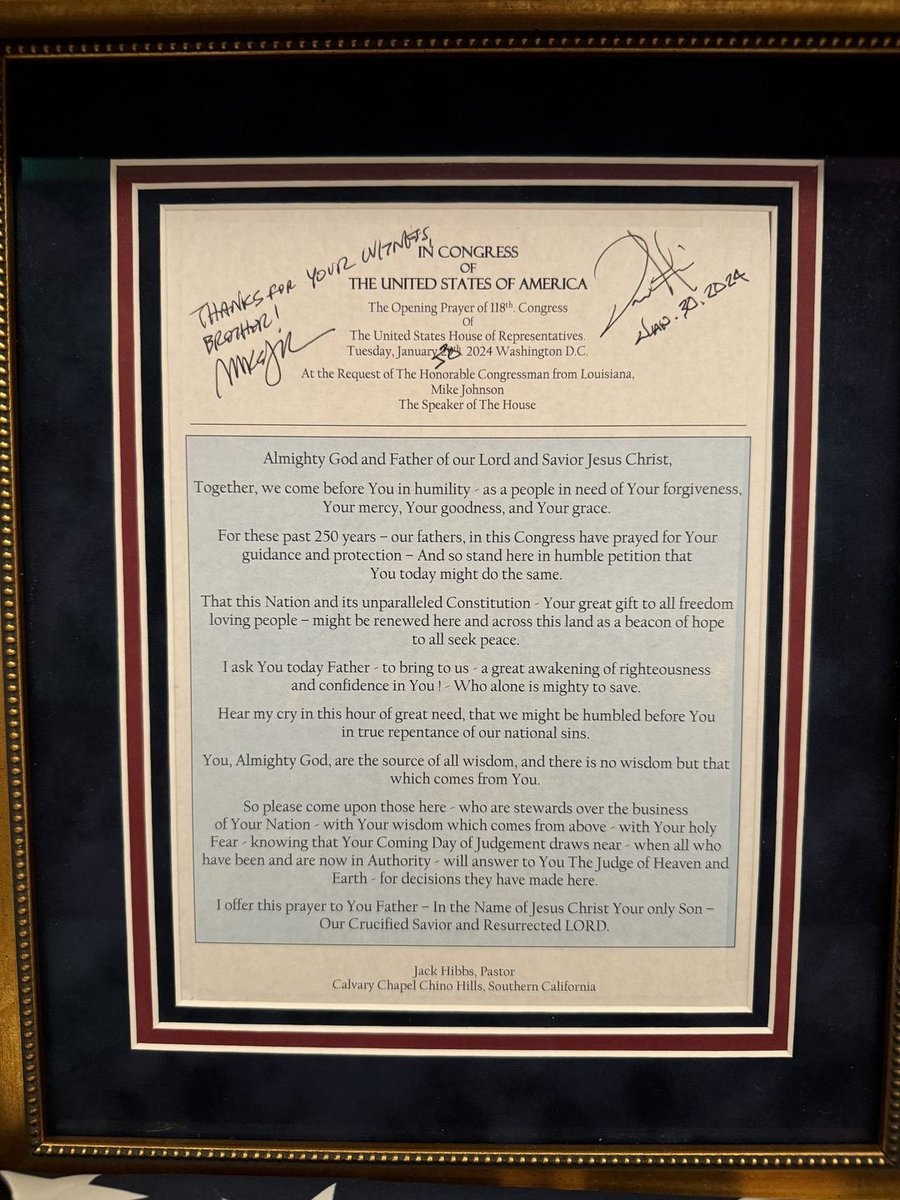 THANKS FOR YOUR WITNESS,
BROTHER!
IN CONGRESS
OF
THE UNITED STATES OF AMERICA
JAN. 30. 2024
The Opening Prayer of 118th. Congress
Of
The United States House of Representatives.
Tuesday, January 30 2024 Washington D.C.
At the Request of The Honorable Congressman from Louisiana,
Mike Johnson
The Speaker of The House
Almighty God and Father of our Lord and Savior Jesus Christ,
Together, we come before You in humility - as a people in need of Your forgiveness,
Your mercy, Your goodness, and Your grace.
For these past 250 years – our fathers, in this Congress have prayed for Your
guidance and protection – And so stand here in humble petition that
You today might do the same.
That this Nation and its unparalleled Constitution - Your great gift to all freedom
loving people – might be renewed here and across this land as a beacon of hope
to all seek peace.
I ask You today Father - to bring to us - a great awakening of righteousness
and confidence in You ! - Who alone is mighty to save.
Hear my cry in this hour of great need, that we might be humbled before You
in true repentance of our national sins.
You, Almighty God, are the source of all wisdom, and there is no wisdom but that
which comes from You.
So please come upon those here - who are stewards over the business
of Your Nation - with Your wisdom which comes from above - with Your holy
Fear - knowing that Your Coming Day of Judgement draws near - when all who
have been and are now in Authority - will answer to You The Judge of Heaven and
Earth - for decisions they have made here.
I offer this prayer to You Father – In the Name of Jesus Christ Your only Son –
Our Crucified Savior and Resurrected LORD.
Jack Hibbs, Pastor
Calvary Chapel Chino Hills, Southern California